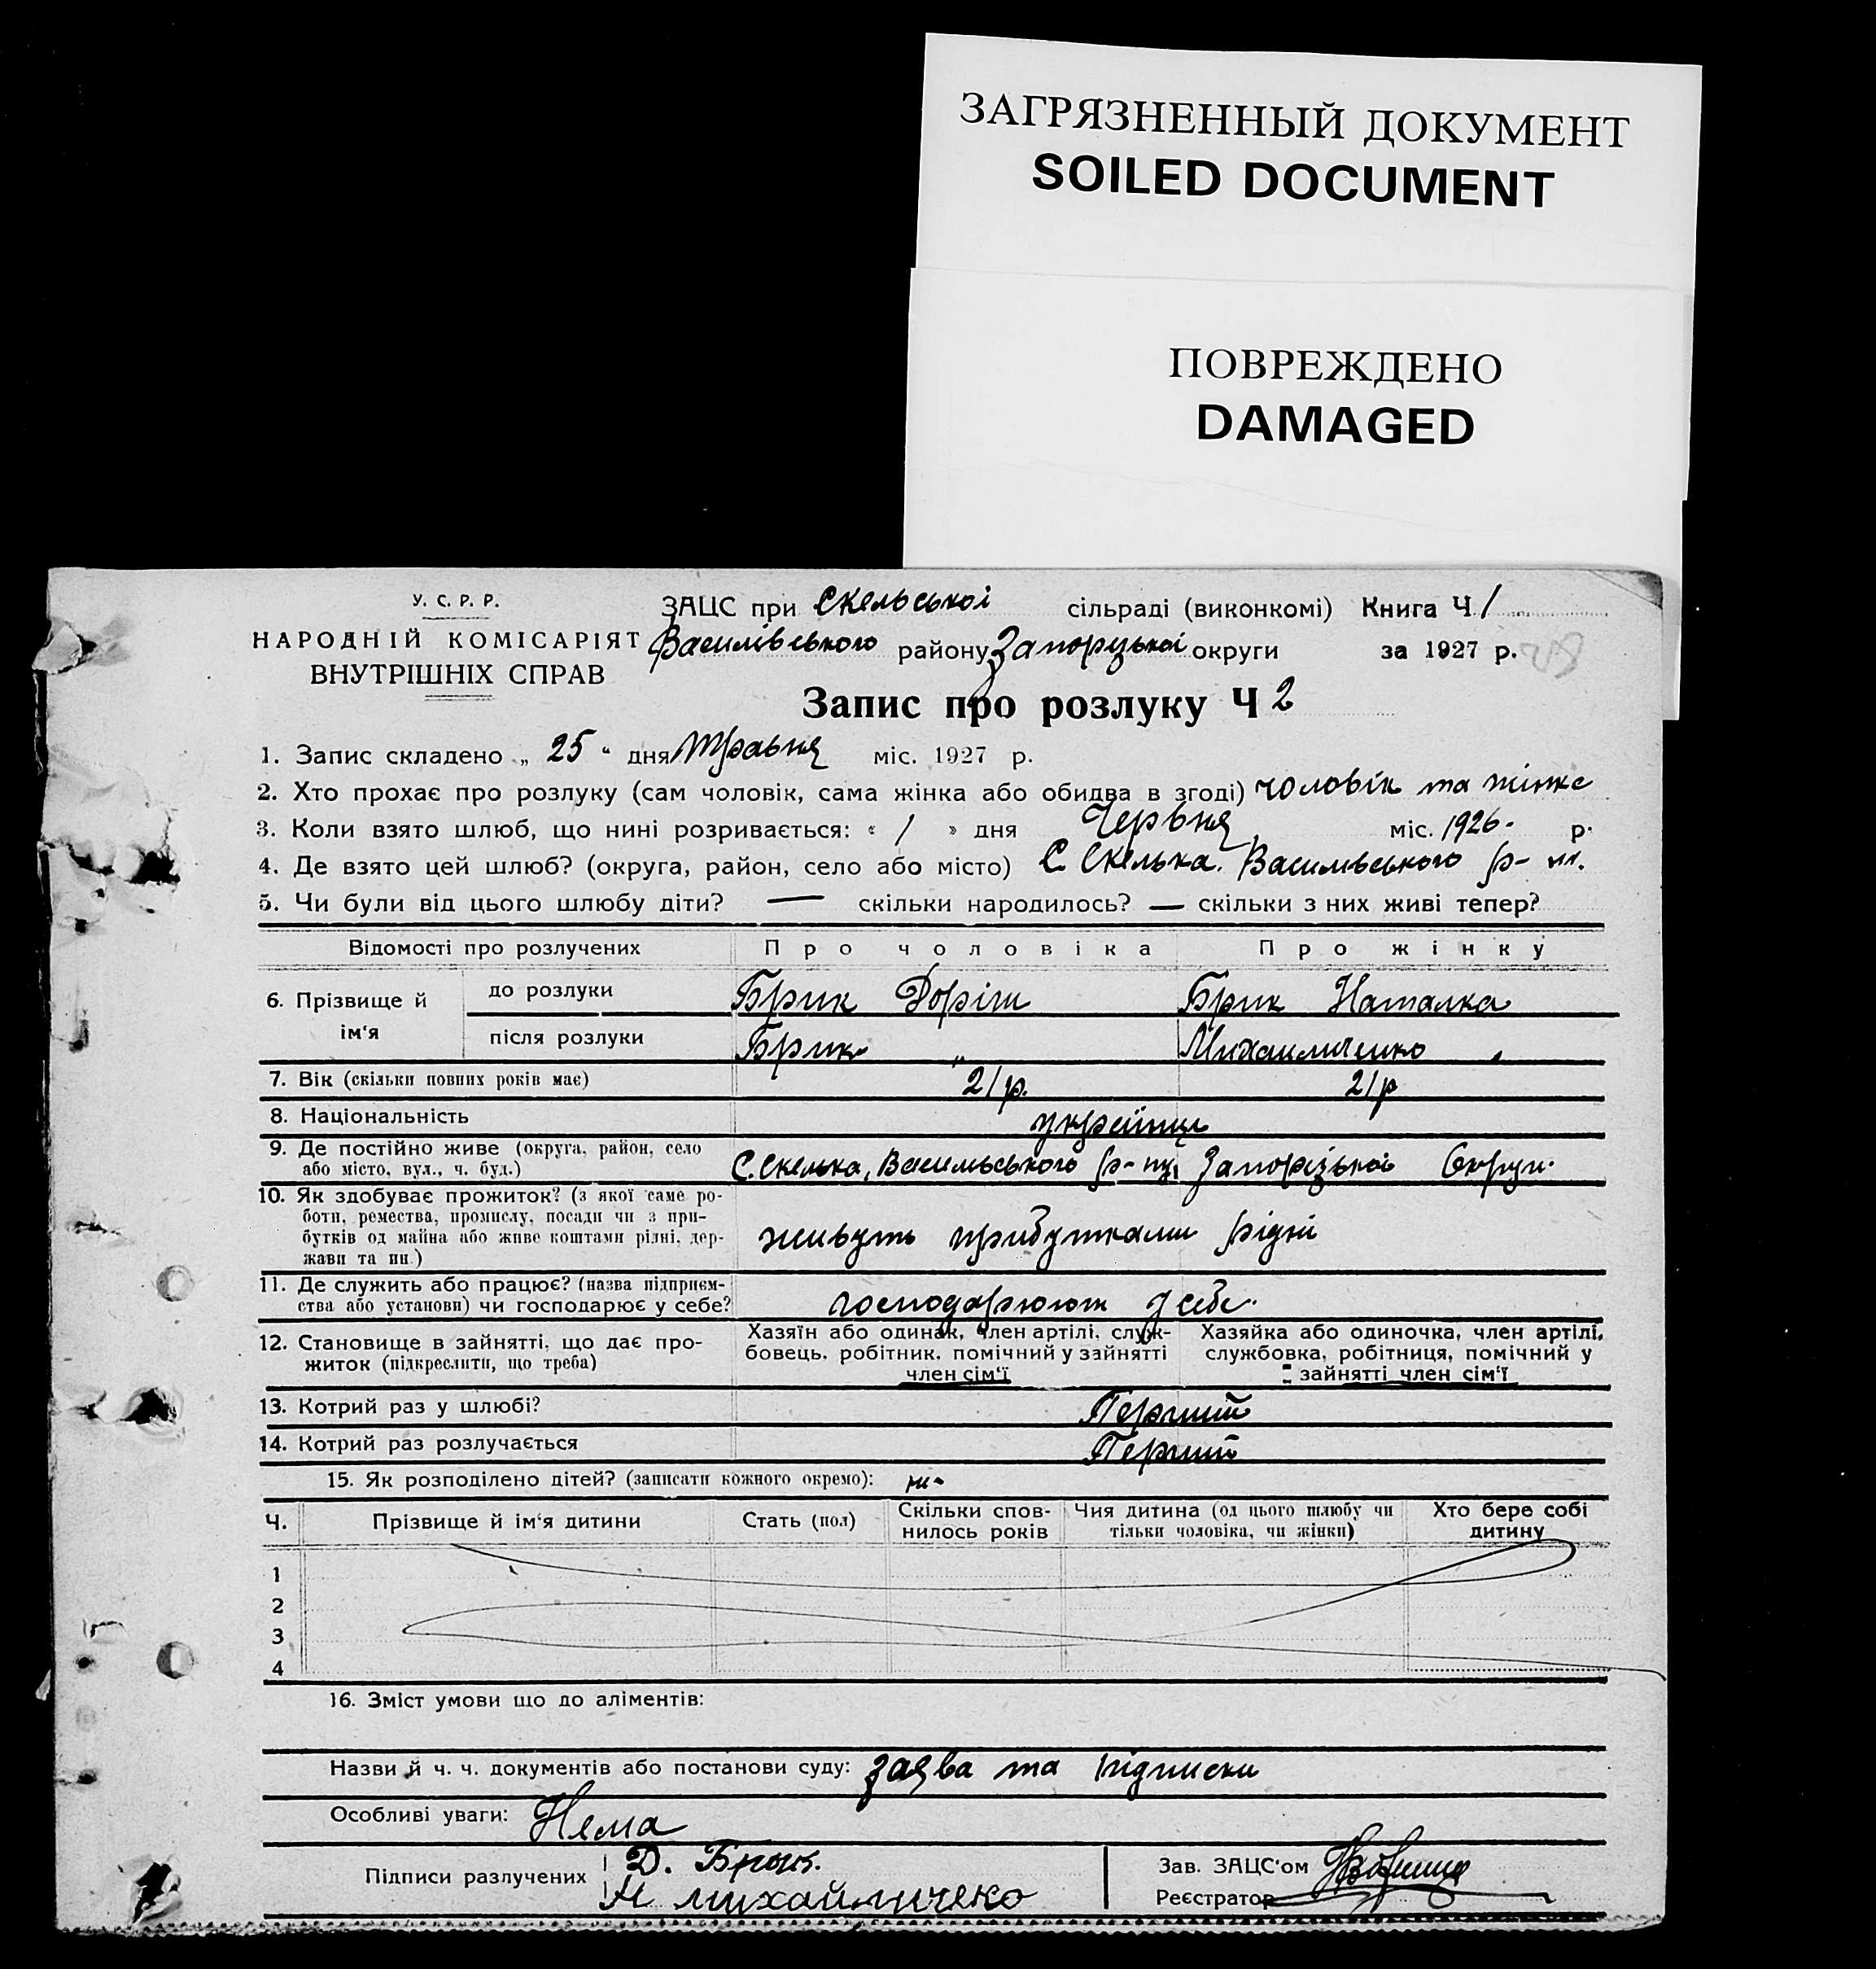 ЗАГРЯЗНЕННЫЙ ДОКУМЕНТ
SOILED DOCUMENT
ПОВРЕЖДЕНО
DAMAGED
У. С. Р. Р.
НАРОДНІЙ КОМІСАРІЯТ
ВНУТРІШНІХ СПРАВ
ЗАЦС при Скельської сільраді (виконкомі) Книга Ч 1
Василівського району Запорізької округи за 1927 р.
Запис про розлуку Ч 2
1. Запис складено „ 25 “ дня Травня міс. 1927 р.
2. Хто прохає про розлуку (сам чоловік, сама жінка або обидва в згоді) чоловік та жінка
3. Коли взято шлюб, що нині розривається: « 1 » дня Червня міс. 1926 р.
4. Де взято цей шлюб? (округа, район, село або місто) С. Скелька. Василівського р-ну.
5. Чи були від цього шлюбу діти? — скільки народилось? — скільки з них живі тепер?
Відомості про розлучених Про чоловіка Про жінку
6. Прізвище й ім‘я до розлуки Брик Доріш Брик Наталка
після розлуки Брик „ Михайличенко „
7. Вік (скільки повних років має) 21 р. 21 р
8. Національність українці
9. Де постійно живе (округа, район, село
або місто, вул., ч. буд.) С. Скелька, Василівського р-ну, Запорізької Округи.
10. Як здобуває прожиток? (з якої саме ро-
боти, ремества, промислу, посади чи з при-
бутків од майна або живе коштами рідні, дер-
жави та ин.) живуть прибутками рідні
11. Де служить або працює? (назва підприєм-
ства або установи) чи господарює у себе? господарюют у себе.
12. Становище в зайнятті, що дає про-
житок (підкреслити, що треба)
Хазяїн або одинак, член артілі, служ-
бовець, робітник, помічний у зайнятті
член сім‘ї
Хазяйка або одиночка, член артілі,
службовка, робітниця, помічний у
зайнятті член сім‘ї
13. Котрий раз у шлюбі? Перший
14. Котрий раз розлучається Перший
15. Як розподілено дітей? (записати кожного окремо):
Ч. Прізвище й ім‘я дитини Стать (пол) Скільки спов-
нилось років Чия дитина (од цього шлюбу чи
тільки чоловіка, чи жінки) Хто бере собі
дитину
1
2
3
4
16. Зміст умови що до аліментів:
Назви й ч. ч. документів або постанови суду: заява та підписки
Особливі уваги: Нема
Підписи разлучених Д. Брик.
Н михайличеко
Зав. ЗАЦС‘ом
Реєстратор